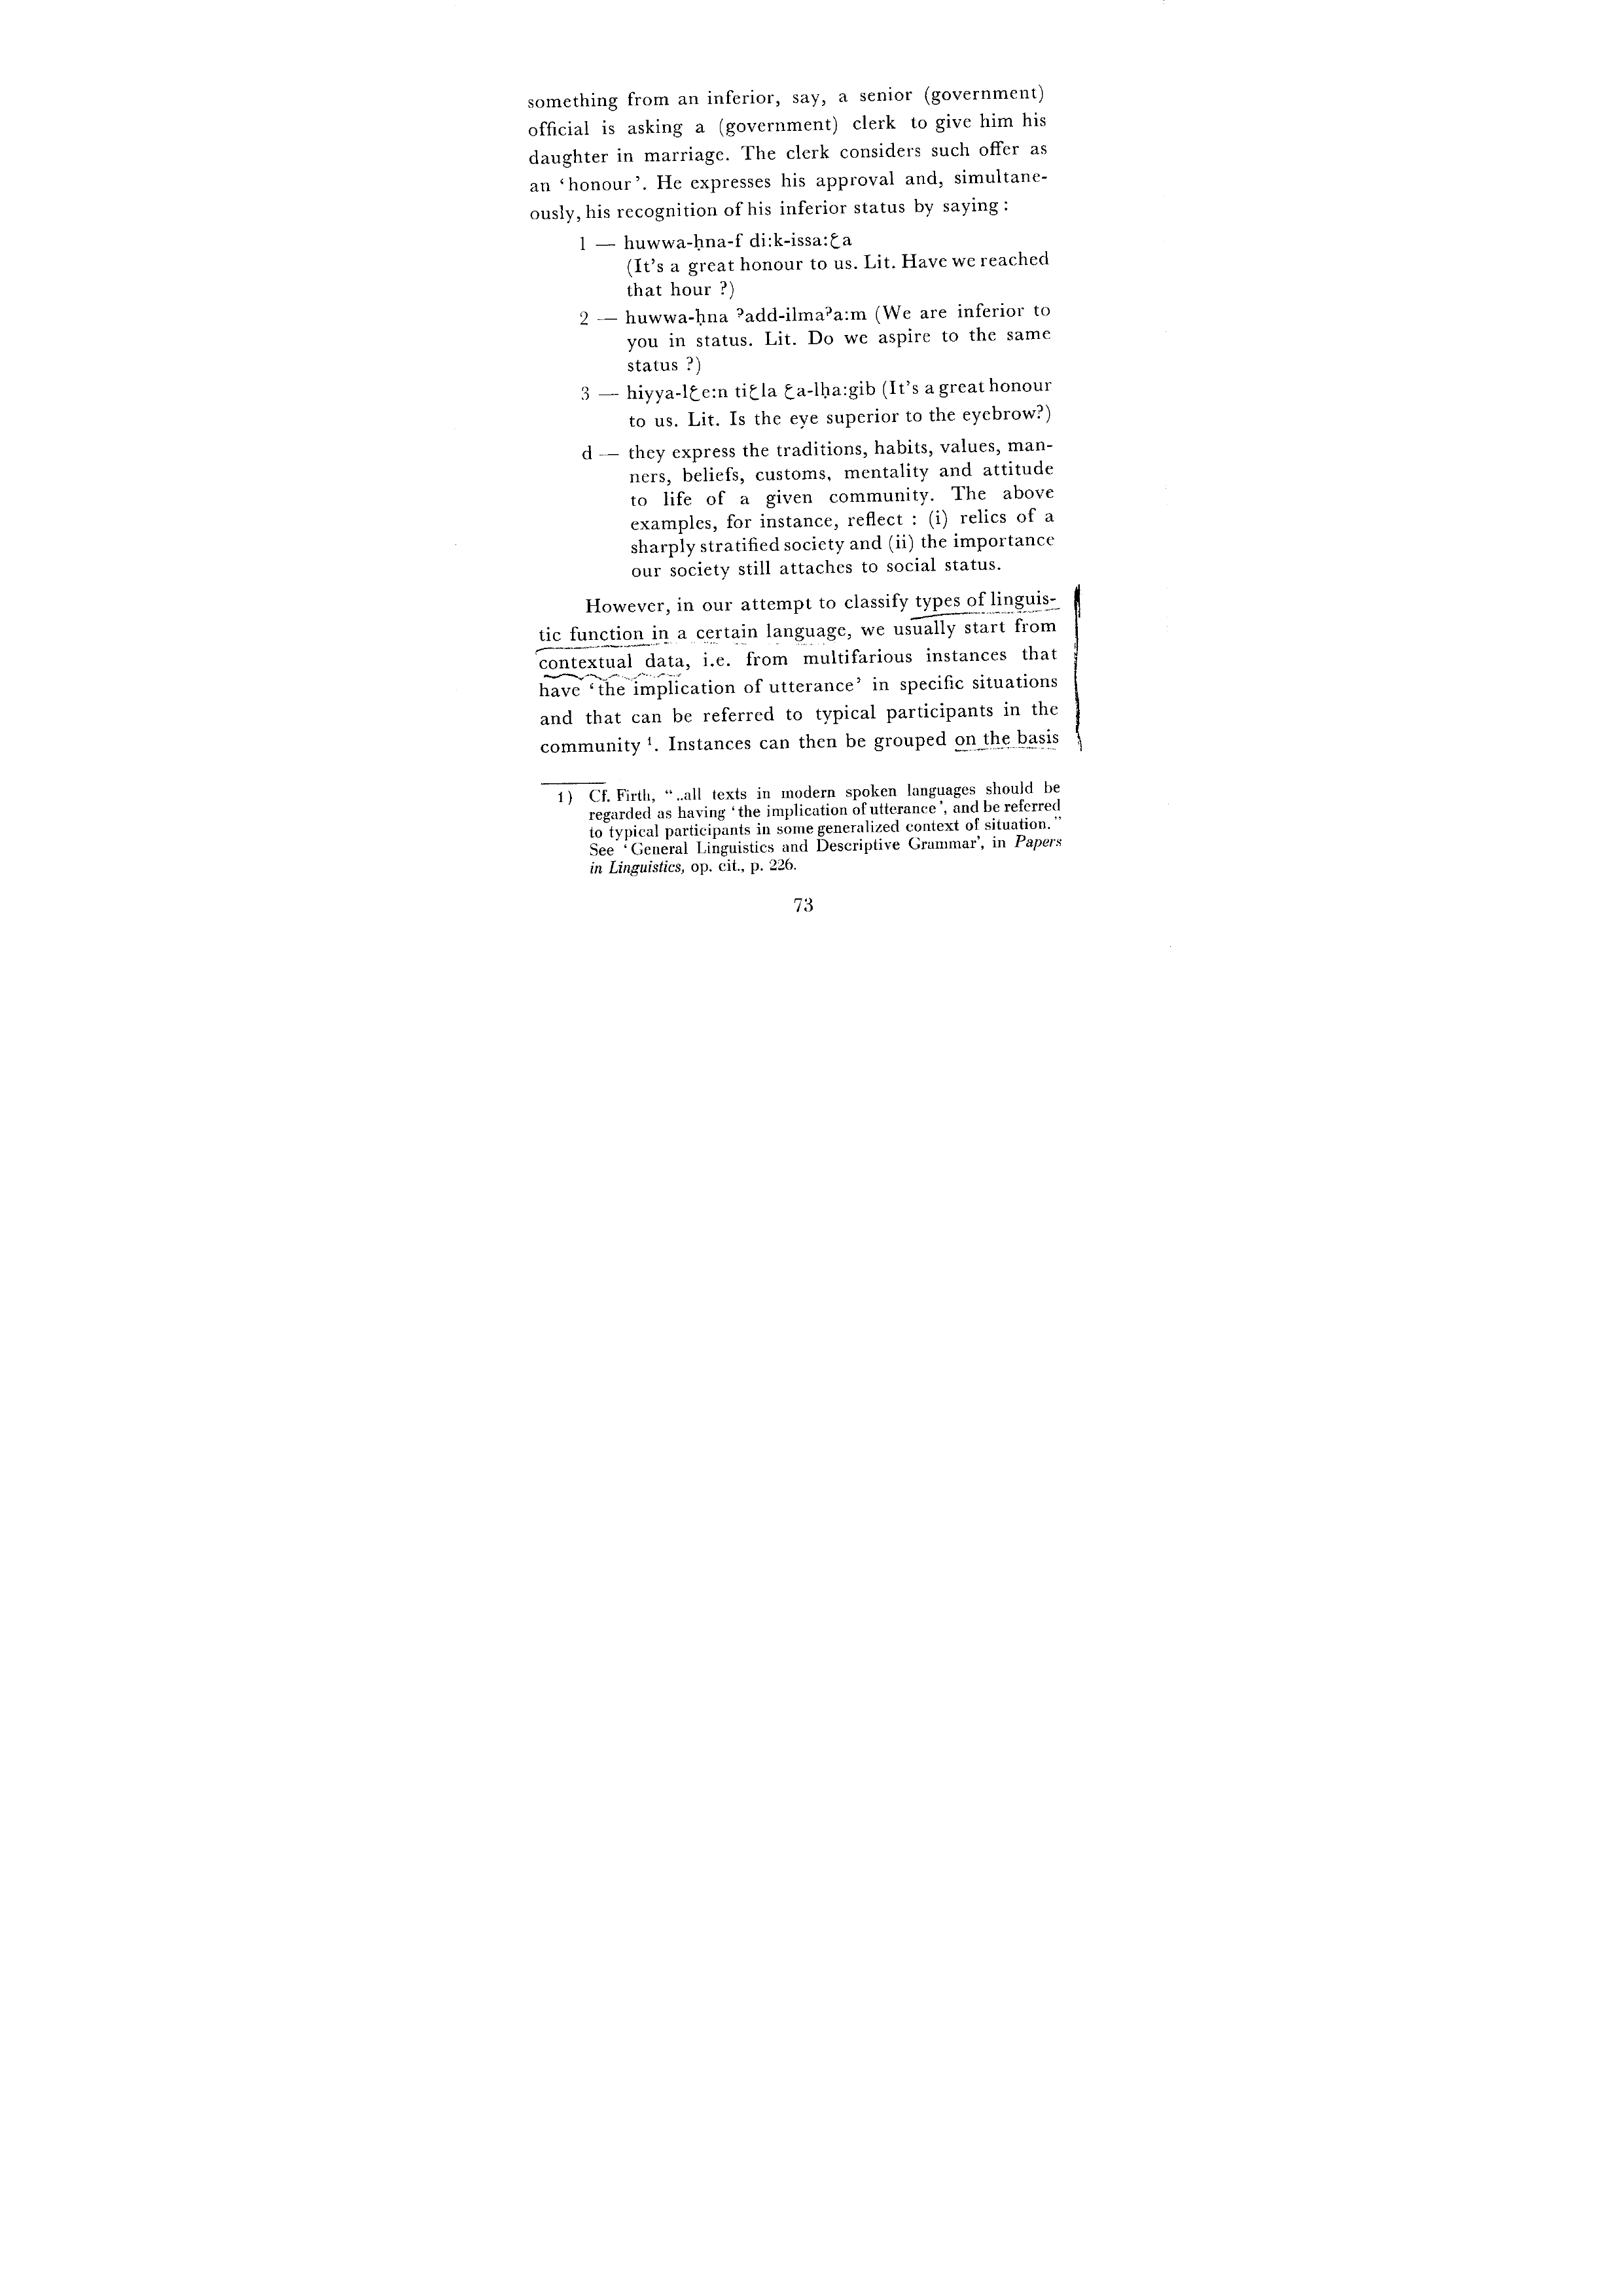 something from an inferior, say, a senior (government)
official is asking a (government) clerk to give him his
daughter in marriage. The clerk considers such offer as
an ‘honour’. He expresses his approval and, simultane-
ously, his recognition of his inferior status by saying :
1 — huwwa-ḥna-f di:k-issa:ƹa
(It’s a great honour to us. Lit. Have we reached
that hour ?)
2 — huwwa-ḥna ˀadd-ilmaˀa:m (We are inferior to
you in status. Lit. Do we aspire to the same
status ?)
3 — hiyya-lƹe:n tiƹla ƹa-lḥa:gib (It’s a great honour
to us. Lit. Is the eye superior to the eyebrow?)
d — they express the traditions, habits, values, man-
ners, beliefs, customs, mentality and attitude
to life of a given community. The above
examples, for instance, reflect : (i) relics of a
sharply stratified society and (ii) the importance
our society still attaches to social status.
However, in our attempt to classify types of linguis-
tic function in a certain language, we usually start from
contextual data, i.e. from multifarious instances that
have ‘the implication of utterance’ in specific situations
and that can be referred to typical participants in the
community ¹. Instances can then be grouped on the basis
1) Cf. Firth, “ ..all texts in modern spoken languages should be
regarded as having ‘the implication of utterance’, and be referred
to typical participants in some generalized context of situation.”
See ‘General Linguistics and Descriptive Grammar’, in Papers
in Linguistics, op. cit., p. 226.
73